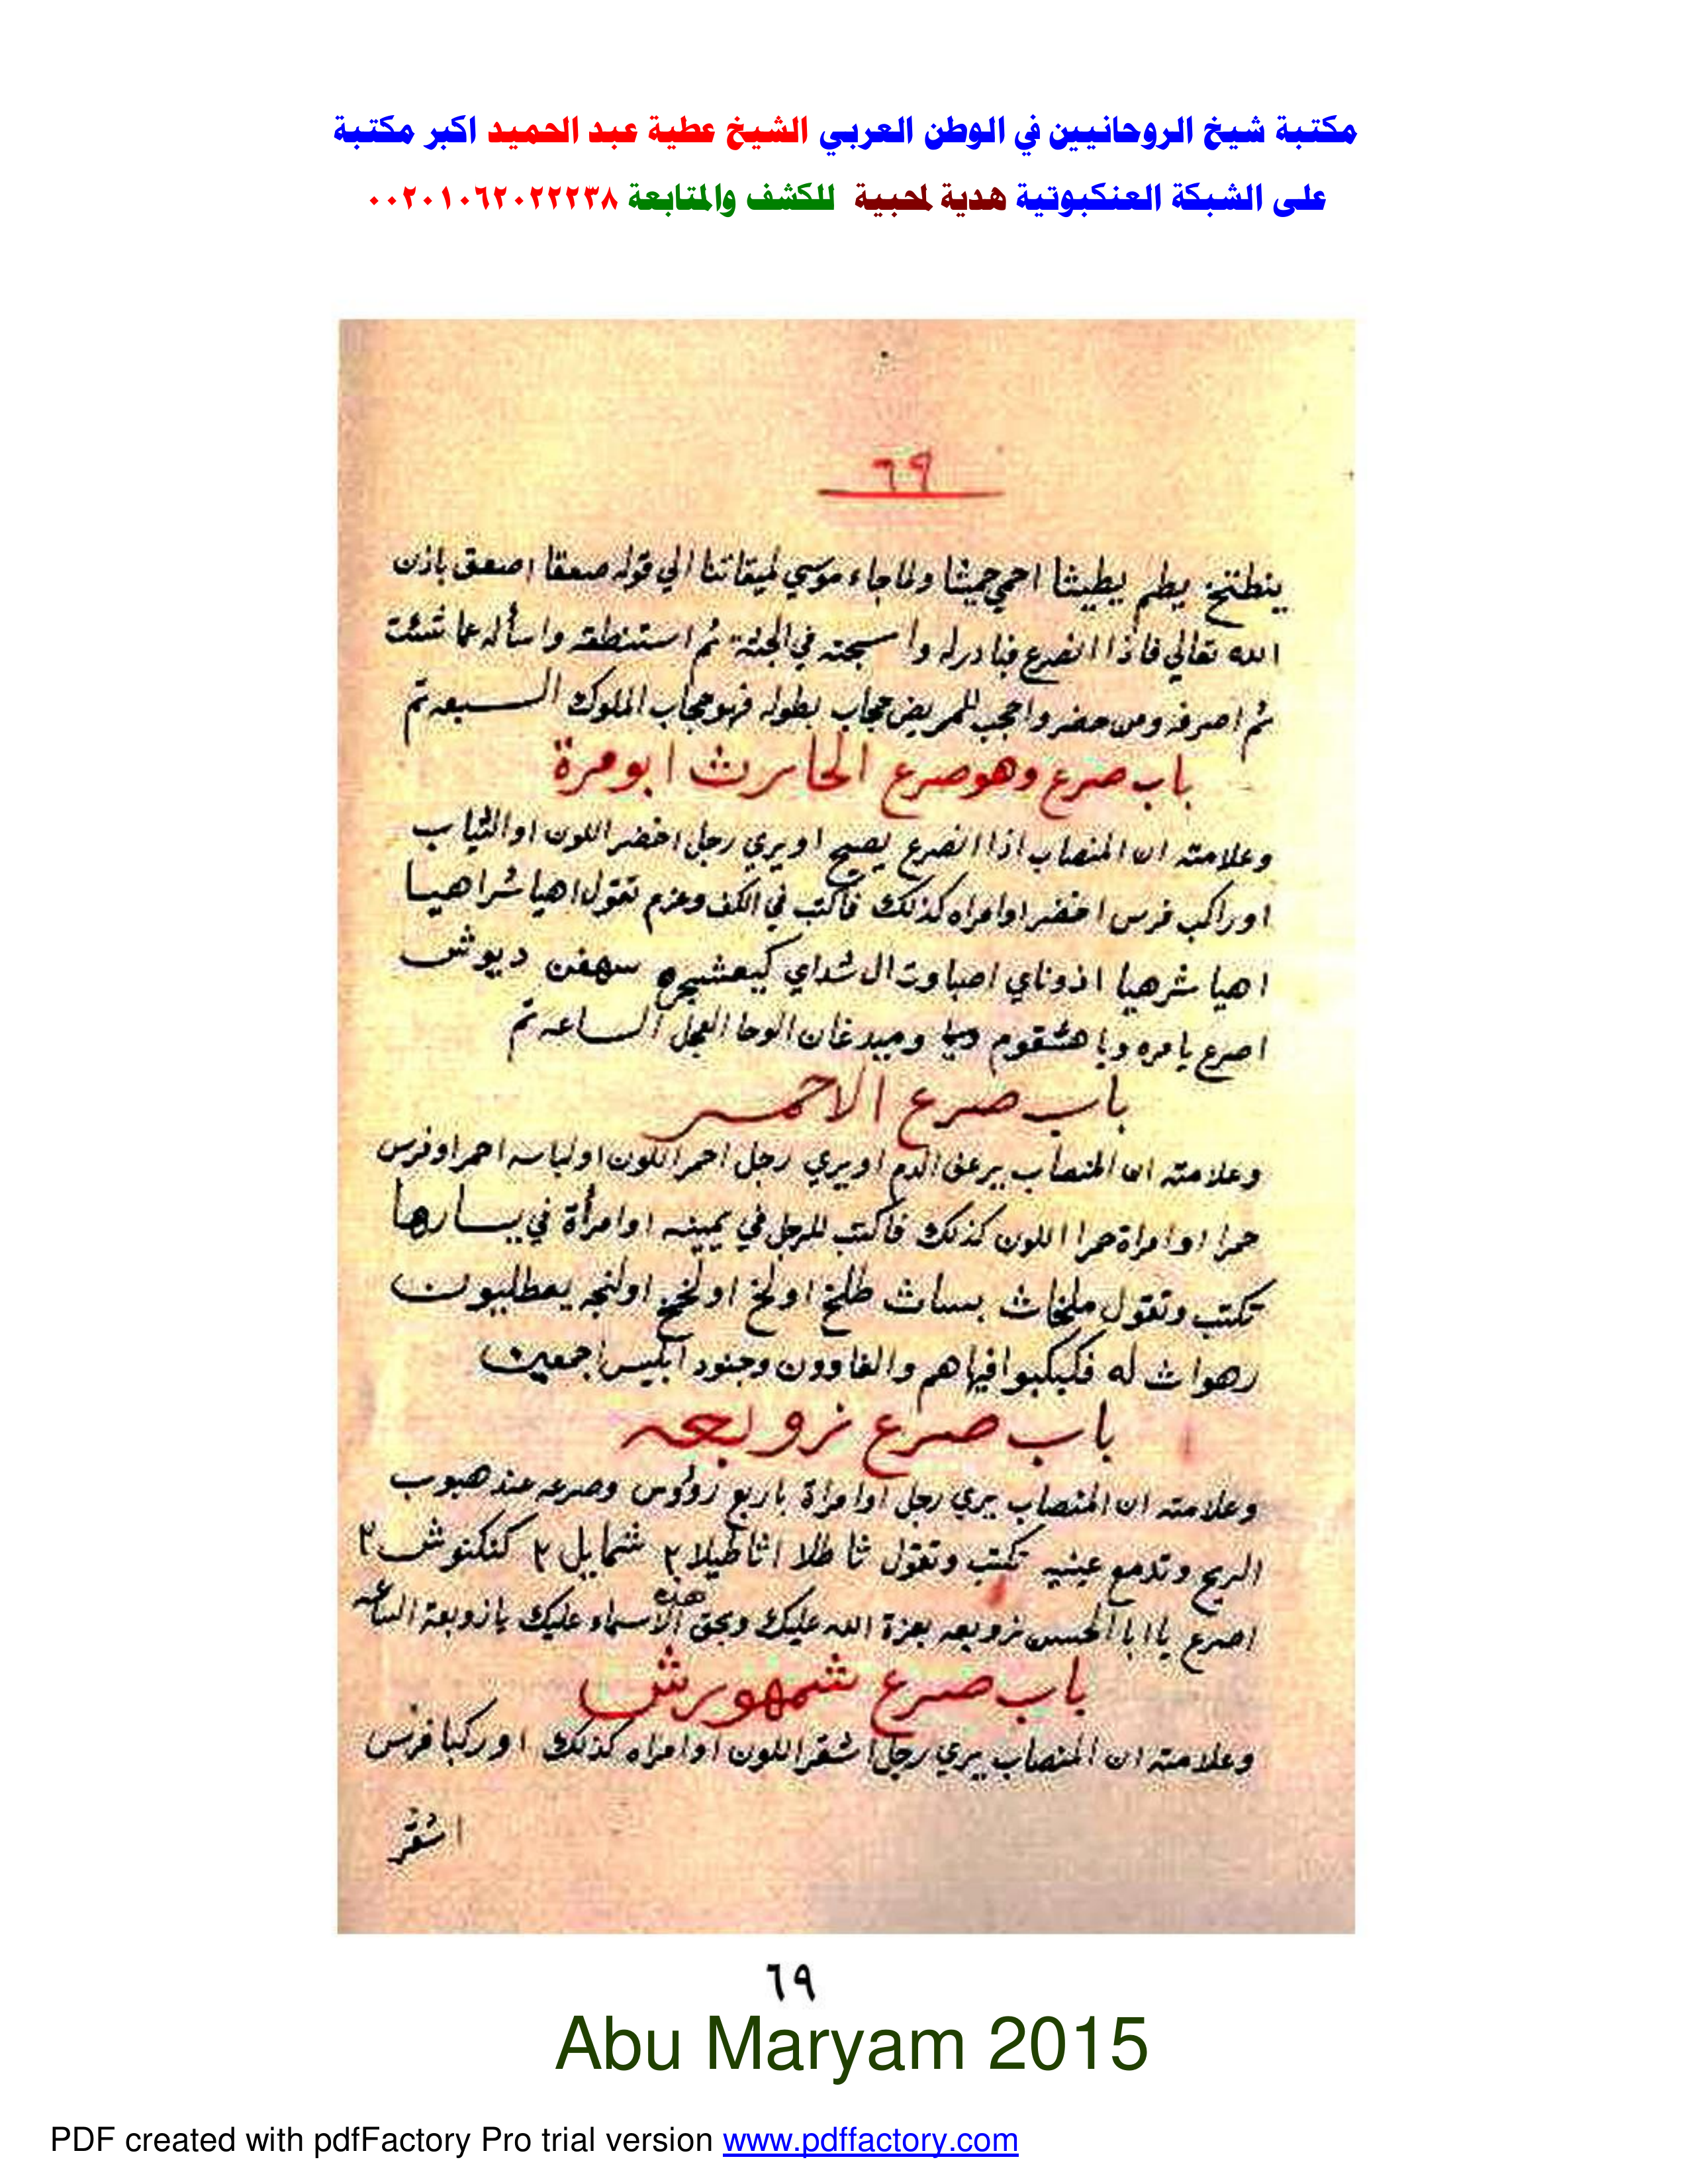 مكتبة شيخ الروحانيين في الوطن العربي الشيخ عطية عبد الحميد اكبر مكتبة
على الشبكة العنكبوتية هدية لمحبية للكشف والمتابعة ٠٠٢٠١٠٦٢٠٢٢٢٣٨
٦٩
ينطنخ يطم يطيثا احمي حميثا ولما جاء موسي لميقاتنا الي قوله صعقا اصعق باذن
الله تعالي فاذا انصرع فبادرله واسجنه في الجثة ثم استنطقه واسأله عما شئت
ثم اصرفه ومن حضر واحجب للمريض حجاب بطوله فهو حجاب الملوك السبعه تم
باب صرع وهو صرع الحارث ابو مرة
وعلامته ان المنصاب اذا انصرع يصيح اويري رجل اخضر اللون او الثياب
اوراكب فرس اخضر اوامراه كذلك فاكتب في الكف وعزم تقول اهيا شراهيا
اهيا شرهيا اذوناي اصباوت ال شداي سهفن ديوش
اصرع يامره ويا هشقوم وميدغان الوحا العجل الساعه تم
باب صرع الاحمر
وعلامته ان المنصاب يرعف الدم اويري رجل احمر اللون اولباسه احمر اوفرس
حمرا اوامراة حمرا اللون كذلك فاكتب للرجل في يمينه اوامرأة في يسارها
تكتب وتقول ملخاث بساث طلخ اولخ اولخخ اولنجه يعطلبون
رهواث له فكبكبوا فيها هم والغاوون وجنود ابليس اجمعين
باب صرع زوبعه
وعلامته ان المنصاب يري رجل اوامراة باربع رؤوس وصرعه عند هبوب
الريح وتدمع عينيه تكتب وتقول ثا طلا اثاطيلا ٢ شمايل ٢ كنكنوش ٢
اصرع ياابا الحسن زوبعه بعزة الله عليك وبحق هذه الاسماء عليك يازوبعة الساعه
باب صرع شمهورش
وعلامته ان المنصاب يري رجل اشقر اللون اوامراه كذلك اوركبا فرس
اشقر
٦٩
Abu Maryam 2015
PDF created with pdfFactory Pro trial version www.pdffactory.com